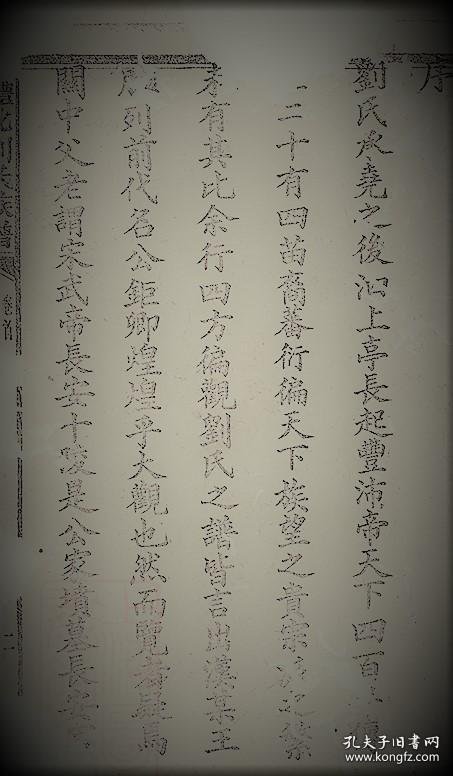 序
劉氏承堯之後泗上亭長起豐沛帝天下四百
二十有四苗裔蕃衍徧天下族望之貴宗之繁
未有其比余行四方徧觀劉氏之譜皆言出漢某王
列前代名公鉅卿煌煌乎大觀也然而覽者
關中父老謂宋武帝長安十陵是公家墳墓長安
劉氏 譜
卷首
二
孔夫子旧书网
www.kongfz.com